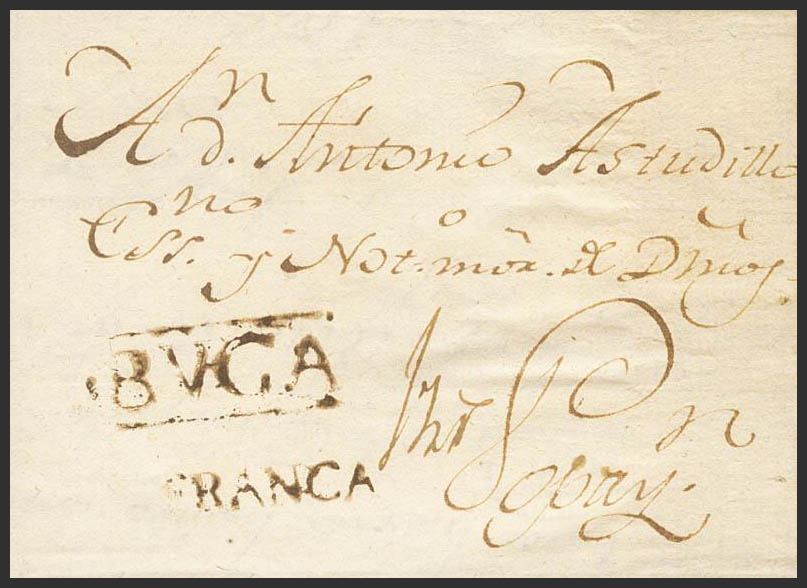 A n
d. Antonio Astudillo
Ess. no y Not. o mõr. de Dmos
BVGA
FRANCA
Popay. n